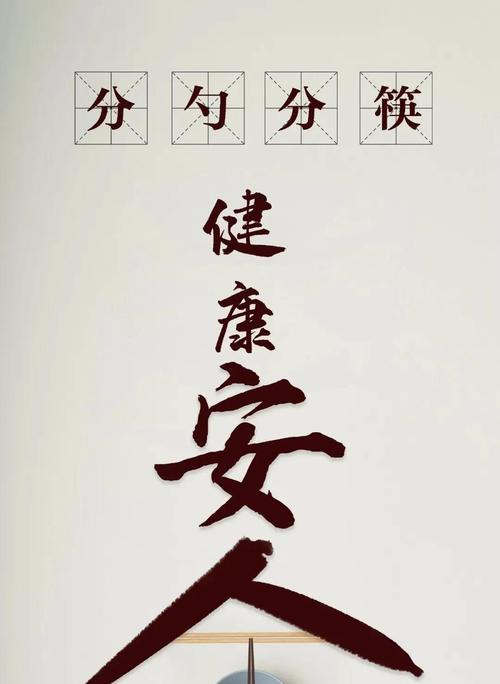 分勺分筷
健康安人